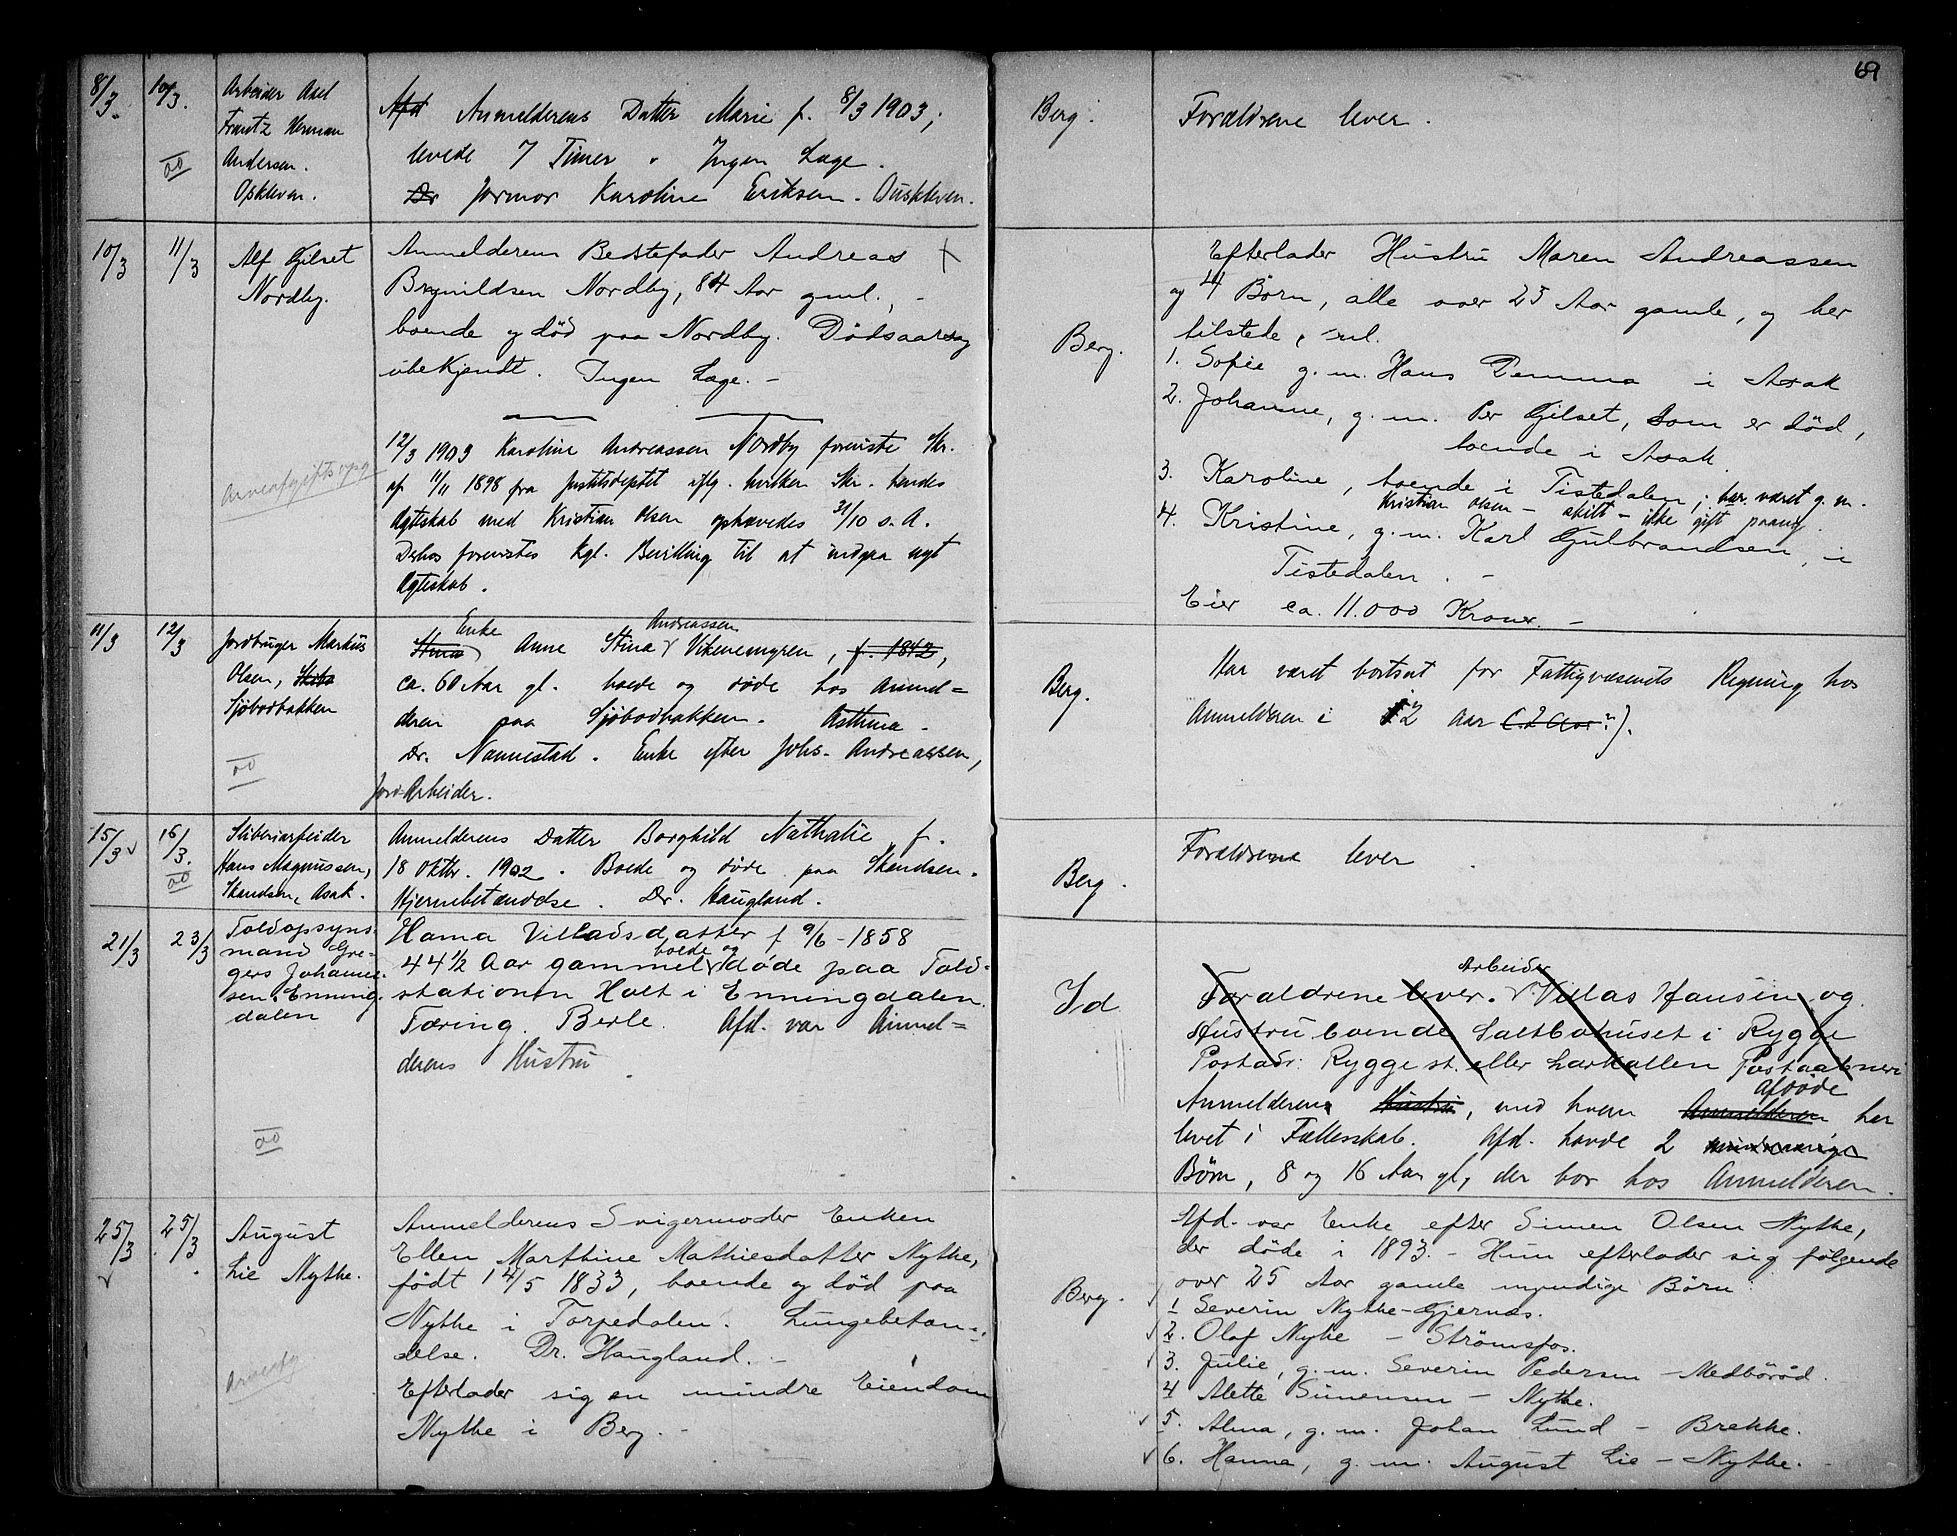 69
8/3. 10/3. Arbeider Axel
Frantz Herman
Andersen.
Opkleven.
Afd Anmelderens Datter Marie f. 8/3 1903;
levede 7 Timer. Ingen Læge.
Dr Jormor Karoline Eriksen. Buskleven.
Berg.
Forældrene lever.
10/3 11/3 Alf Gilset
Nordby.
Arveafgiftspg
Anmelderens Bedstefader Andreas
Brynildsen Nordby, 84 Aar gml.,
boende og död paa Nordby. Dödsaarsag
ubekjendt. Ingen Læge. -
12/3 1903 Karoline Andreassen Nordby foreviste Skr.
af 11/11 1898 fra Justitsdeptet iflg. hvilken Skr. hendes
Ægteskab med Kristian Olsen ophævedes 31/10 s. A.
Derhos forevistes Kgl. Bevilling til at indgaa nyt
Ægteskab.
Berg.
Efterlader Hustru Maren Andreassen
og 4 Børn, alle over 25 Aar gamle, og her
tilstede,
1. Sofie g.m. Hans Demma i Asak
2. Johanne, g.m. Per Gilset, som er död,
boende i Asak.
3. Karoline, boende i Tistedalen; har været g.m.
Kristian Olsen - skilt - ikke gift paany.
4. Kristine, g.m. Karl Gulbrandsen, i
Tistedalen. -
Eier ca. 11.000 Kroner. -
11/3 12/3 Jordbruger Markus
Olsen,
Sjöbodbakken
Enke Andreassen
Stina Anne Stina Vikenemyren, f. 1842,
ca. 60 Aar gl. boede og döde hos Anmel=
deren paa Sjöbodbakken. Asthma.
Dr. Nannestad. Enke efter Johs. Andreassen,
Jord-Arbeider.
Berg.
Har været bortsat for Fattigvæsenets Regning hos
Anmelderen i 12 Aar
15/3 16/3. Sliberiarbeider
Hans Magnussen,
Skandsen, Asak.
Anmelderens Datter Borghild Nathalie f.
18 Oktbr. 1902. Boede og döde paa Skandsen.
Hjernebetændelse. Dr. Haugland.
Berg.
Forældrene lever
21/3 23/3 Toldopsyns-
mand Gre-
gers Johanne-
sen. Enning-
dalen
Hanna Villadsdatter f 9/6-1858
44 1/2 Aar gammel boede og döde paa Told-
stationen Holt i Enningdalen.
Tæring. Berle. Afd. var Anmel=
derens Hustru.
Id
Arbeider
Forældrene lever. Villas Hansen og
Hustru boende Saltbohuset i Rygge
Postadr: Rygge st. eller Larkollen Postaabneri
Afdöde
Anmelderens Hustru, med hvem Anmelderen har
levet i Fællesskab. Afd. havde 2 mindreaarige
Börn, 8 og 16 Aar gl, der bor hos Anmelderen.
25/3 25/3. August
Lie Nythe.
Arveafg
Anmelderens Svigermoder Enken
Ellen Marthine Mathiesdatter Nythe,
födt 14/5 1833, boende og död paa
Nythe i Torpedalen. Lungebetæn-
delse. Dr. Haugland. -
Efterlader sig en mindre Eiendom
Nythe i Berg. -
Berg.
Afd. var Enke efter Simen Olsen Nythe,
der döde i 1893. - Hun efterlader sig fölgende
over 25 Aar gamle myndige Börn:
1 Severin Nythe-Gjernæs.
2. Olaf Nythe - Strömsfos.
3. Julie, g.m. Severin Pedersen - Medböröd.
4 Alette Simensen - Nythe.
5. Alma, g.m. Johan Lund - Brekke.
6. Hanna, g.m. August Lie - Nythe.